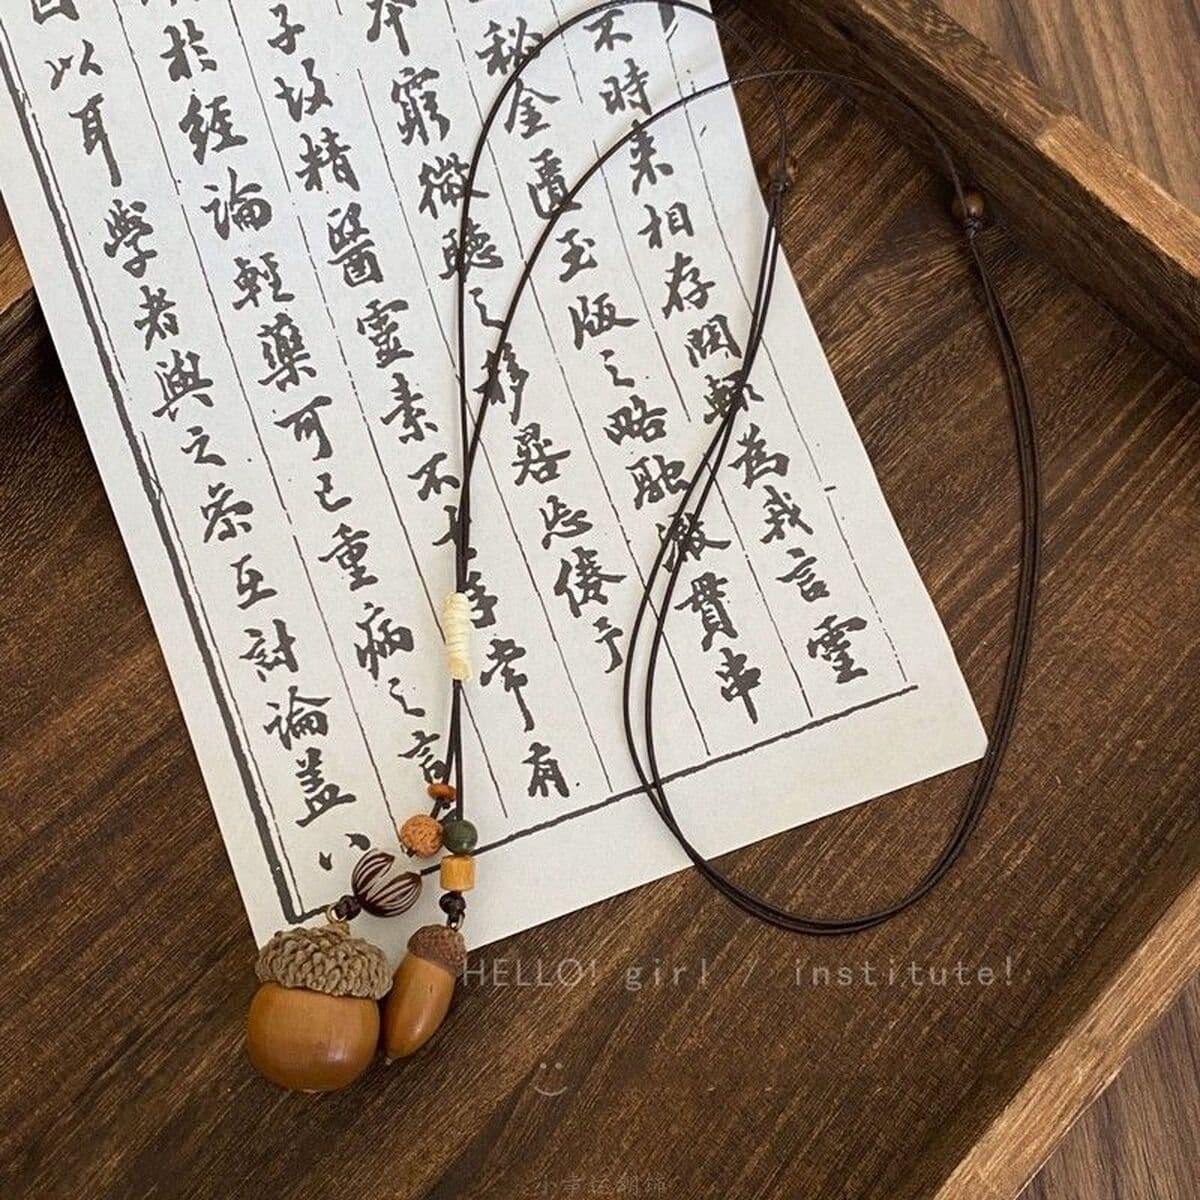 不時来相存問輒為我言靈
秘金匱玉版之略馳激貫串
本窮微聽之移晷忘倦予
子精醫靈素不去手常有
於經論輕藥可已重病之言
以耳學者與之參互討論蓋八
HELLO! girl / institute!